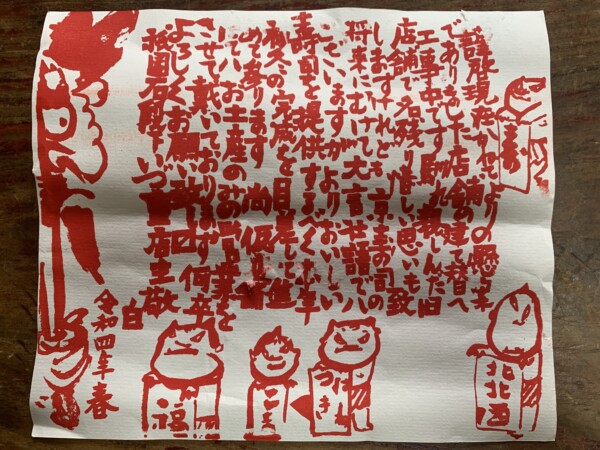 謹啓現在かねてよりの懸案
でありました店舗の建て替へ
工事中です 馴れ親しんだ旧
店舗で名残り惜しい思いも致
しますけれども 寿司の
将来にむけて大言壮語でハ
ございますがよりおいしい
寿司を提供するべく 本年
初冬の完成を目途として進
めて参ります 尚仮
お土産のみの営業を
させて戴いております 何卒
よろしくお願い致
祇園石段下いづ重店主敬
白
令和四年 春
寿
北北西
福